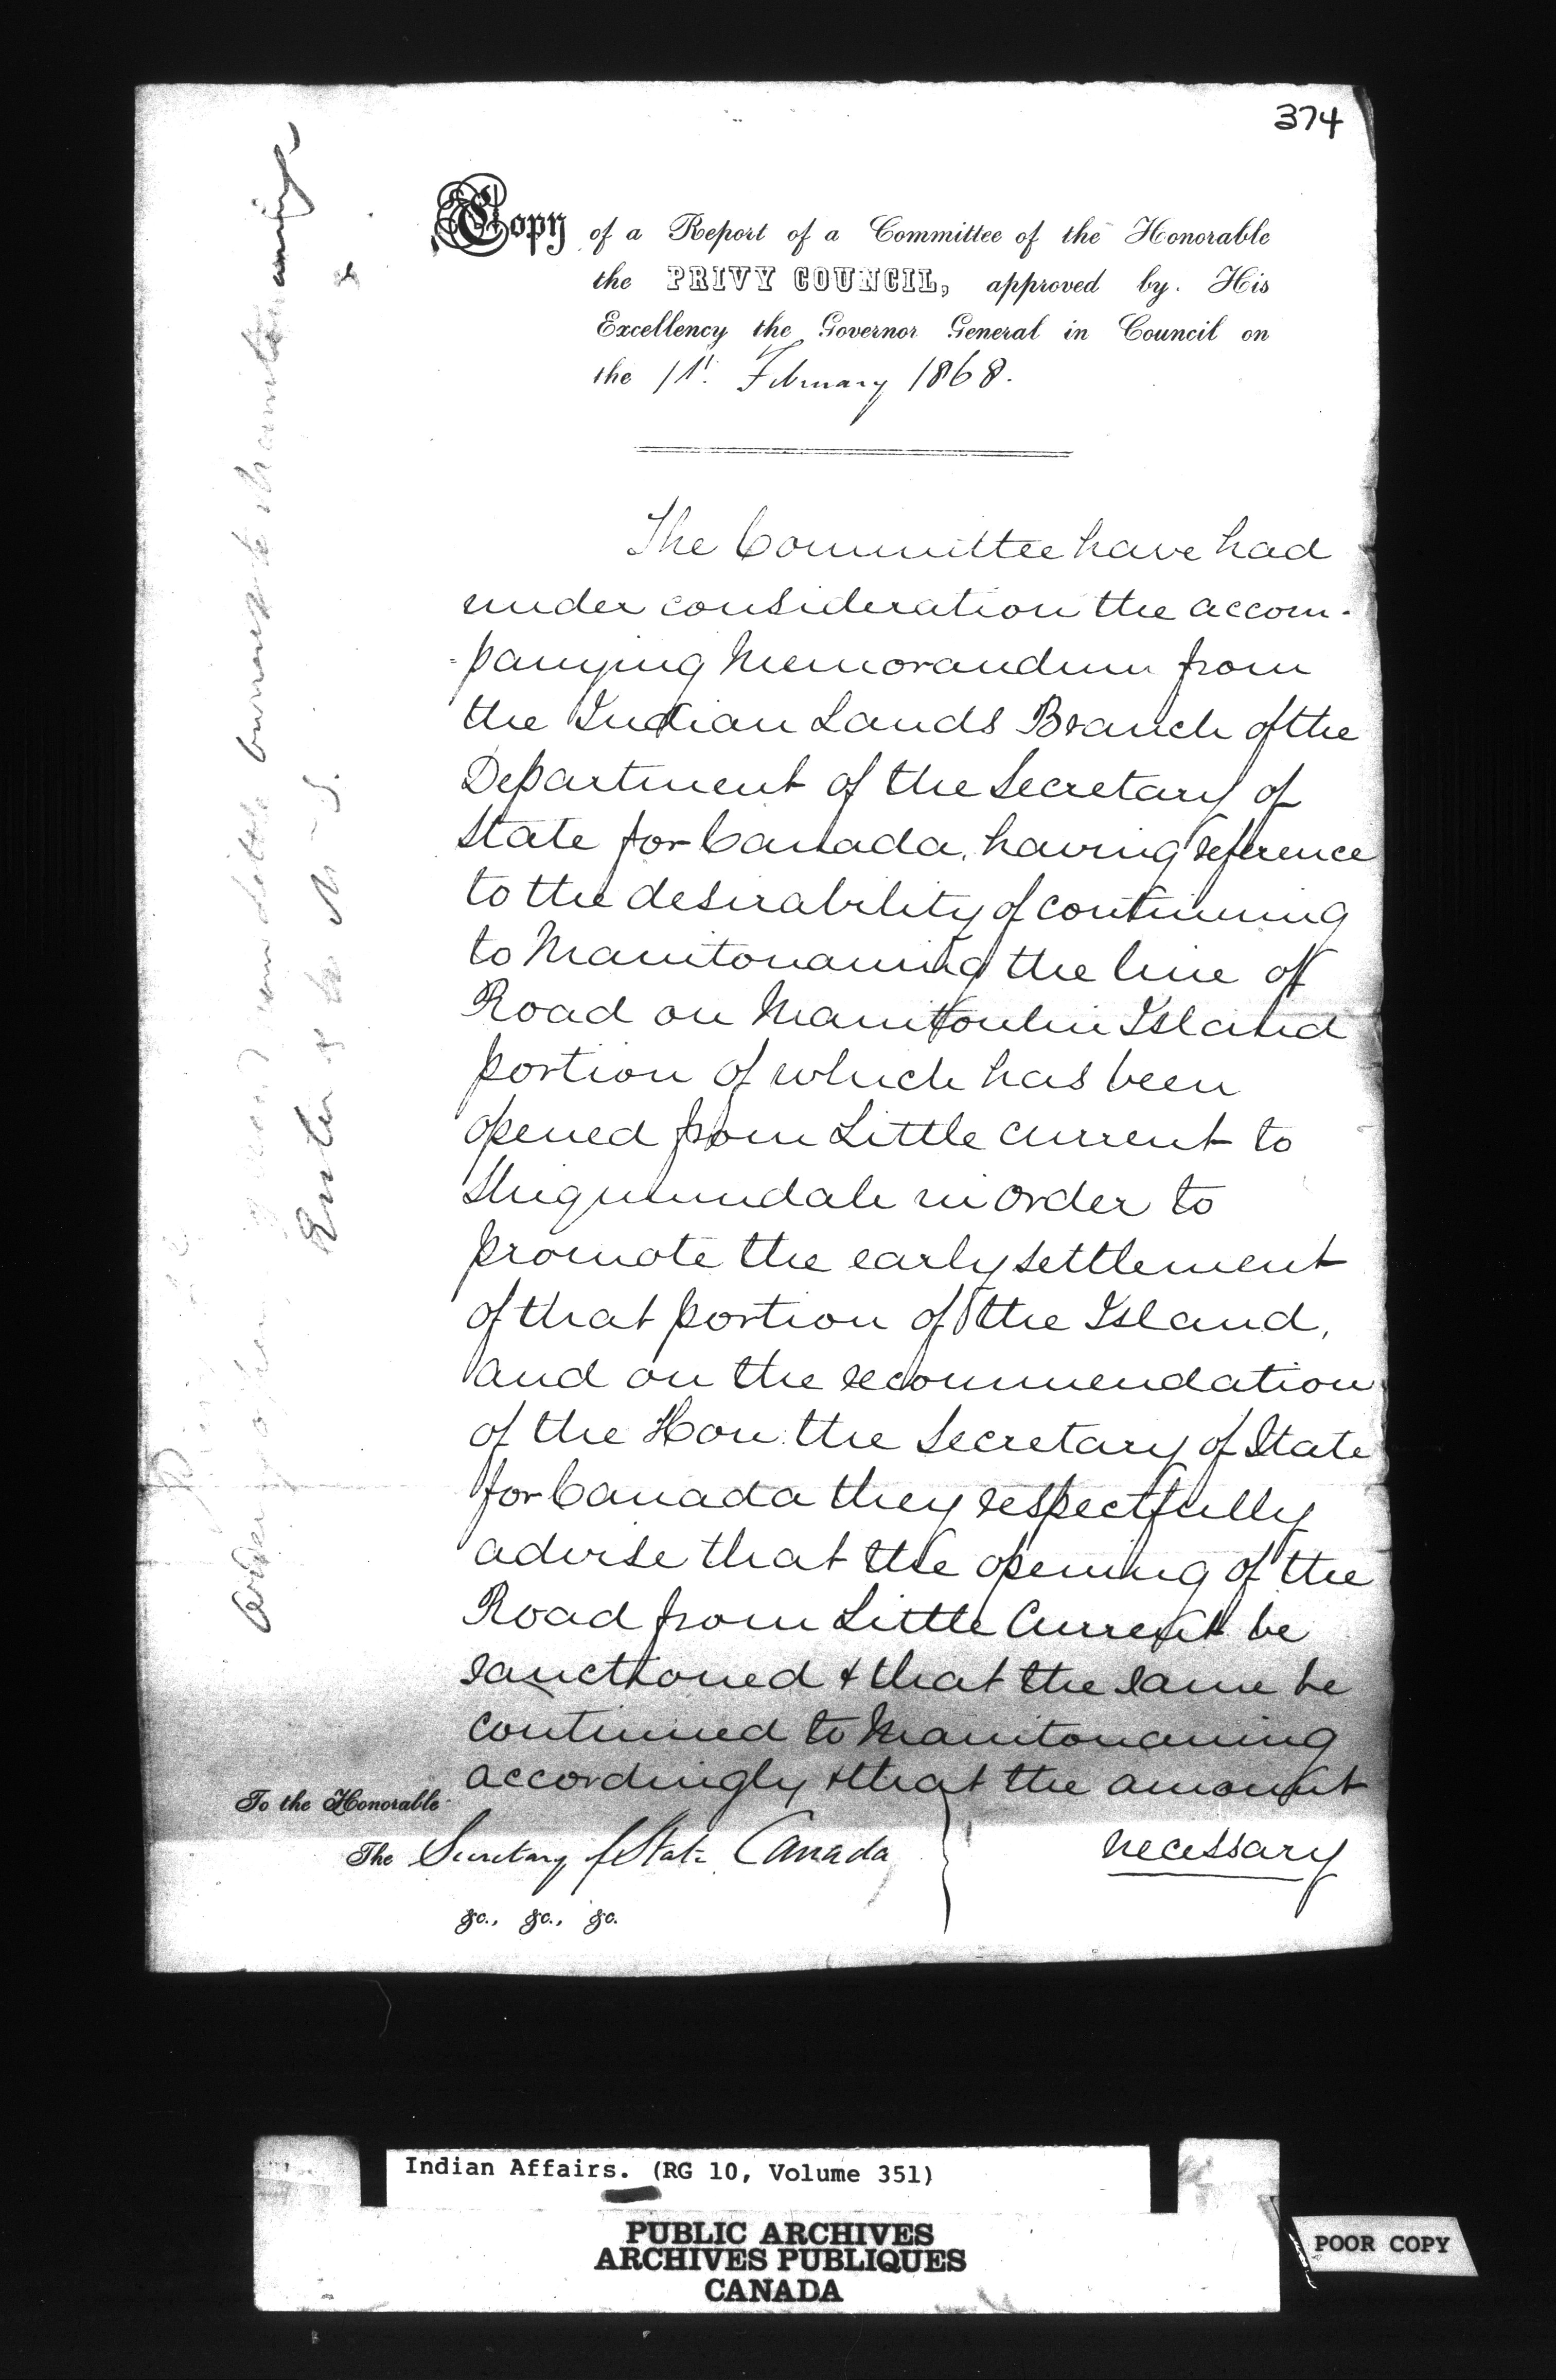 374
Copy of a Report of a Committee of the Honorable
the PRIVY COUNCIL, approved by His
Excellency the Governor General in Council on
the 1st February 1868.
The Committee have had
under consideration the accom-
-panying Memorandum from
the Indian Lands Branch of the
Department of the Secretary of
State for Canada, having reference
to the desirability of continuing
to Manitouaning the line of
Road on Manitoulin Island
portion of which has been
opened from Little Current to
Shiguiundah in order to
promote the early settlement
of that portion of the Island,
and on the recommendation
of the Hon: the Secretary of State
for Canada they respectfully
advise that the opening of the
Road from Little Current be
sanctioned & that the same be
continued to Manitouaning
accordingly & that the amount
necessary
To the Honorable
The Secretary of State Canada
&c., &c., &c.
Indian Affairs. (RG 10, Volume 351)
PUBLIC ARCHIVES
ARCHIVES PUBLIQUES
CANADA
POOR COPY